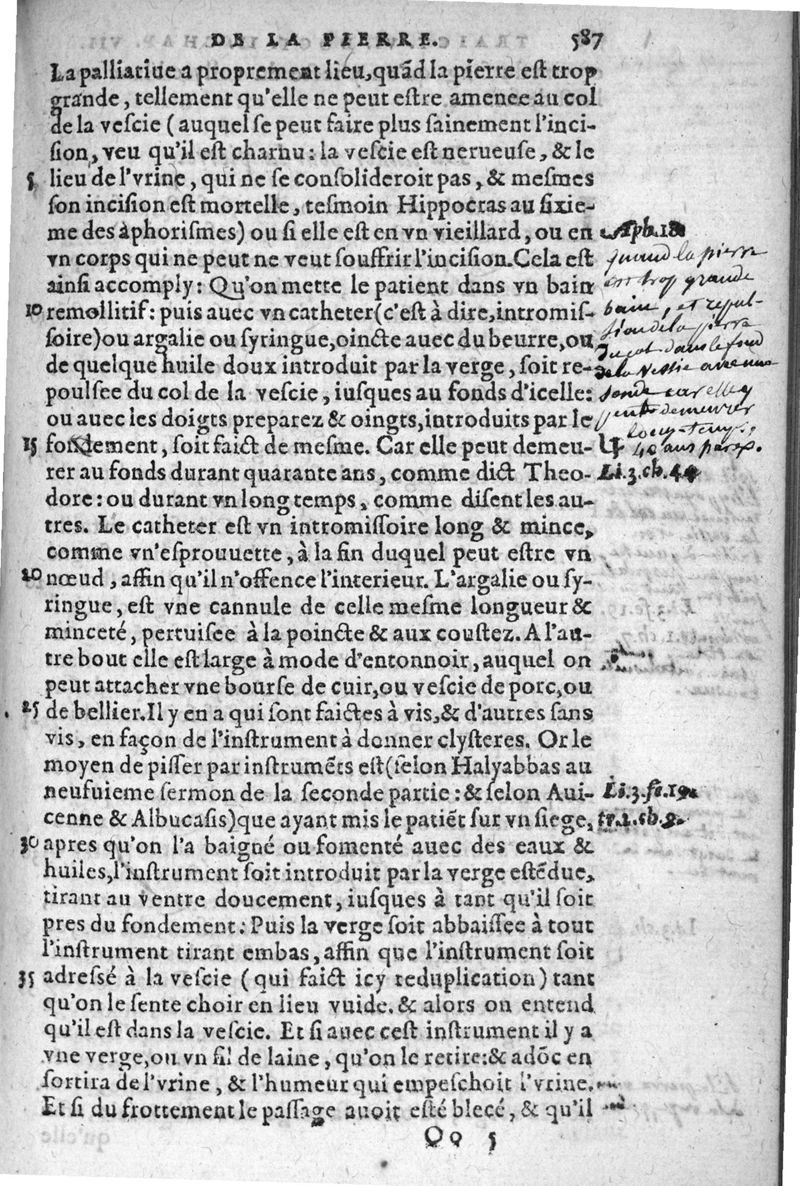 DE LA PIERRE. 587
La palliatiue a proprement lieu, quãd la pierre est trop
grande, tellement qu'elle ne peut estre amenee au col
de la vescie (auquel se peut faire plus sainement l'inci-
sion, veu qu'il est charnu: la vescie est nerueuse, & le
5 lieu de l'vrine, qui ne se consolideroit pas, & mesmes
son incision est mortelle, tesmoin Hippocras au sixie-
me des aphorismes) ou si elle est en vn vieillard, ou en Aph. 18
vn corps qui ne peut ne veut souffrir l'incision. Cela est quand la pierre
ainsi accomply: Qu'on mette le patient dans vn bain est trop grande
10 remollitif: puis auec vn catheter (c'est à dire, intromis- bain, et repul-
soire) ou argalie ou syringue, oincte auec du beurre, ou sion de la pierre
de quelque huile doux introduit par la verge, soit re- dans le fond
poulsee du col de la vescie, iusques au fonds d'icelle: de la vessie avec une
ou auec les doigts preparez & oingts, introduits par le sonde car elle y
15 fondement, soit faict de mesme. Car elle peut demeu- peut demeurer longtemps, 40 ans
rer au fonds durant quarante ans, comme dict Theo- Li. 3. ch. 44
dore: ou durant vn long temps, comme disent les au-
tres. Le catheter est vn intromissoire long & mince,
comme vn'esprouuette, à la fin duquel peut estre vn
20 nœud, affin qu'il n'offence l'interieur. L'argalie ou sy-
ringue, est vne cannule de celle mesme longueur &
minceté, pertuisee à la poincte & aux coustez. A l'au-
tre bout elle est large à mode d'entonnoir, auquel on
peut attacher vne bourse de cuir, ou vescie de porc, ou
25 de bellier. Il y en a qui sont faictes à vis, & d'autres sans
vis, en façon de l'instrument à donner clysteres. Or le
moyen de pisser par instrumẽts est (selon Halyabbas au
neufuieme sermon de la seconde partie: & selon Aui- Li. 3. fe. 19.
cenne & Albucasis) que ayant mis le patiẽt sur vn siege, tr. 2. ch. 9.
30 apres qu'on l'a baigné ou fomenté auec des eaux &
huiles, l'instrument soit introduit par la verge estẽdue,
tirant au ventre doucement, iusques à tant qu'il soit
pres du fondement: Puis la verge soit abbaissee à tout
l'instrument tirant embas, affin que l'instrument soit
35 adressé à la vescie (qui faict icy reduplication) tant
qu'on le sente choir en lieu vuide. & alors on entend
qu'il est dans la vescie. Et si auec cest instrument il y a
vne verge, ou vn fil de laine, qu'on le retire: & adõc en
sortira de l'vrine, & l'humeur qui empeschoit l'vrine.
Et si du frottement le passage auoit esté blecé, & qu'il
Qq 5